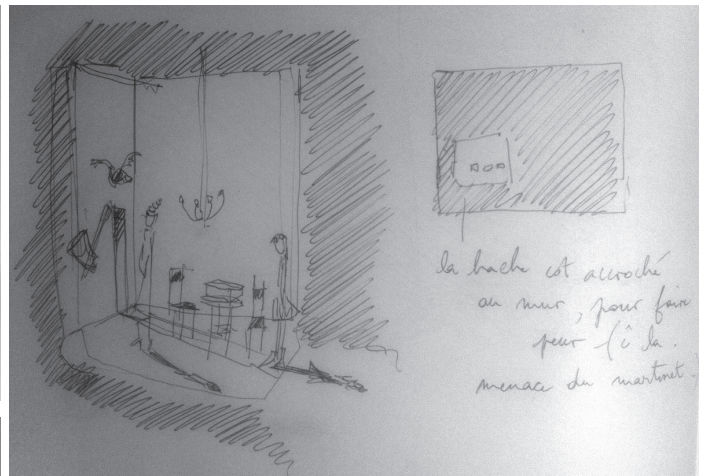 la hache est accroché
au mur, pour faire
peur (à la
menace du martinet.